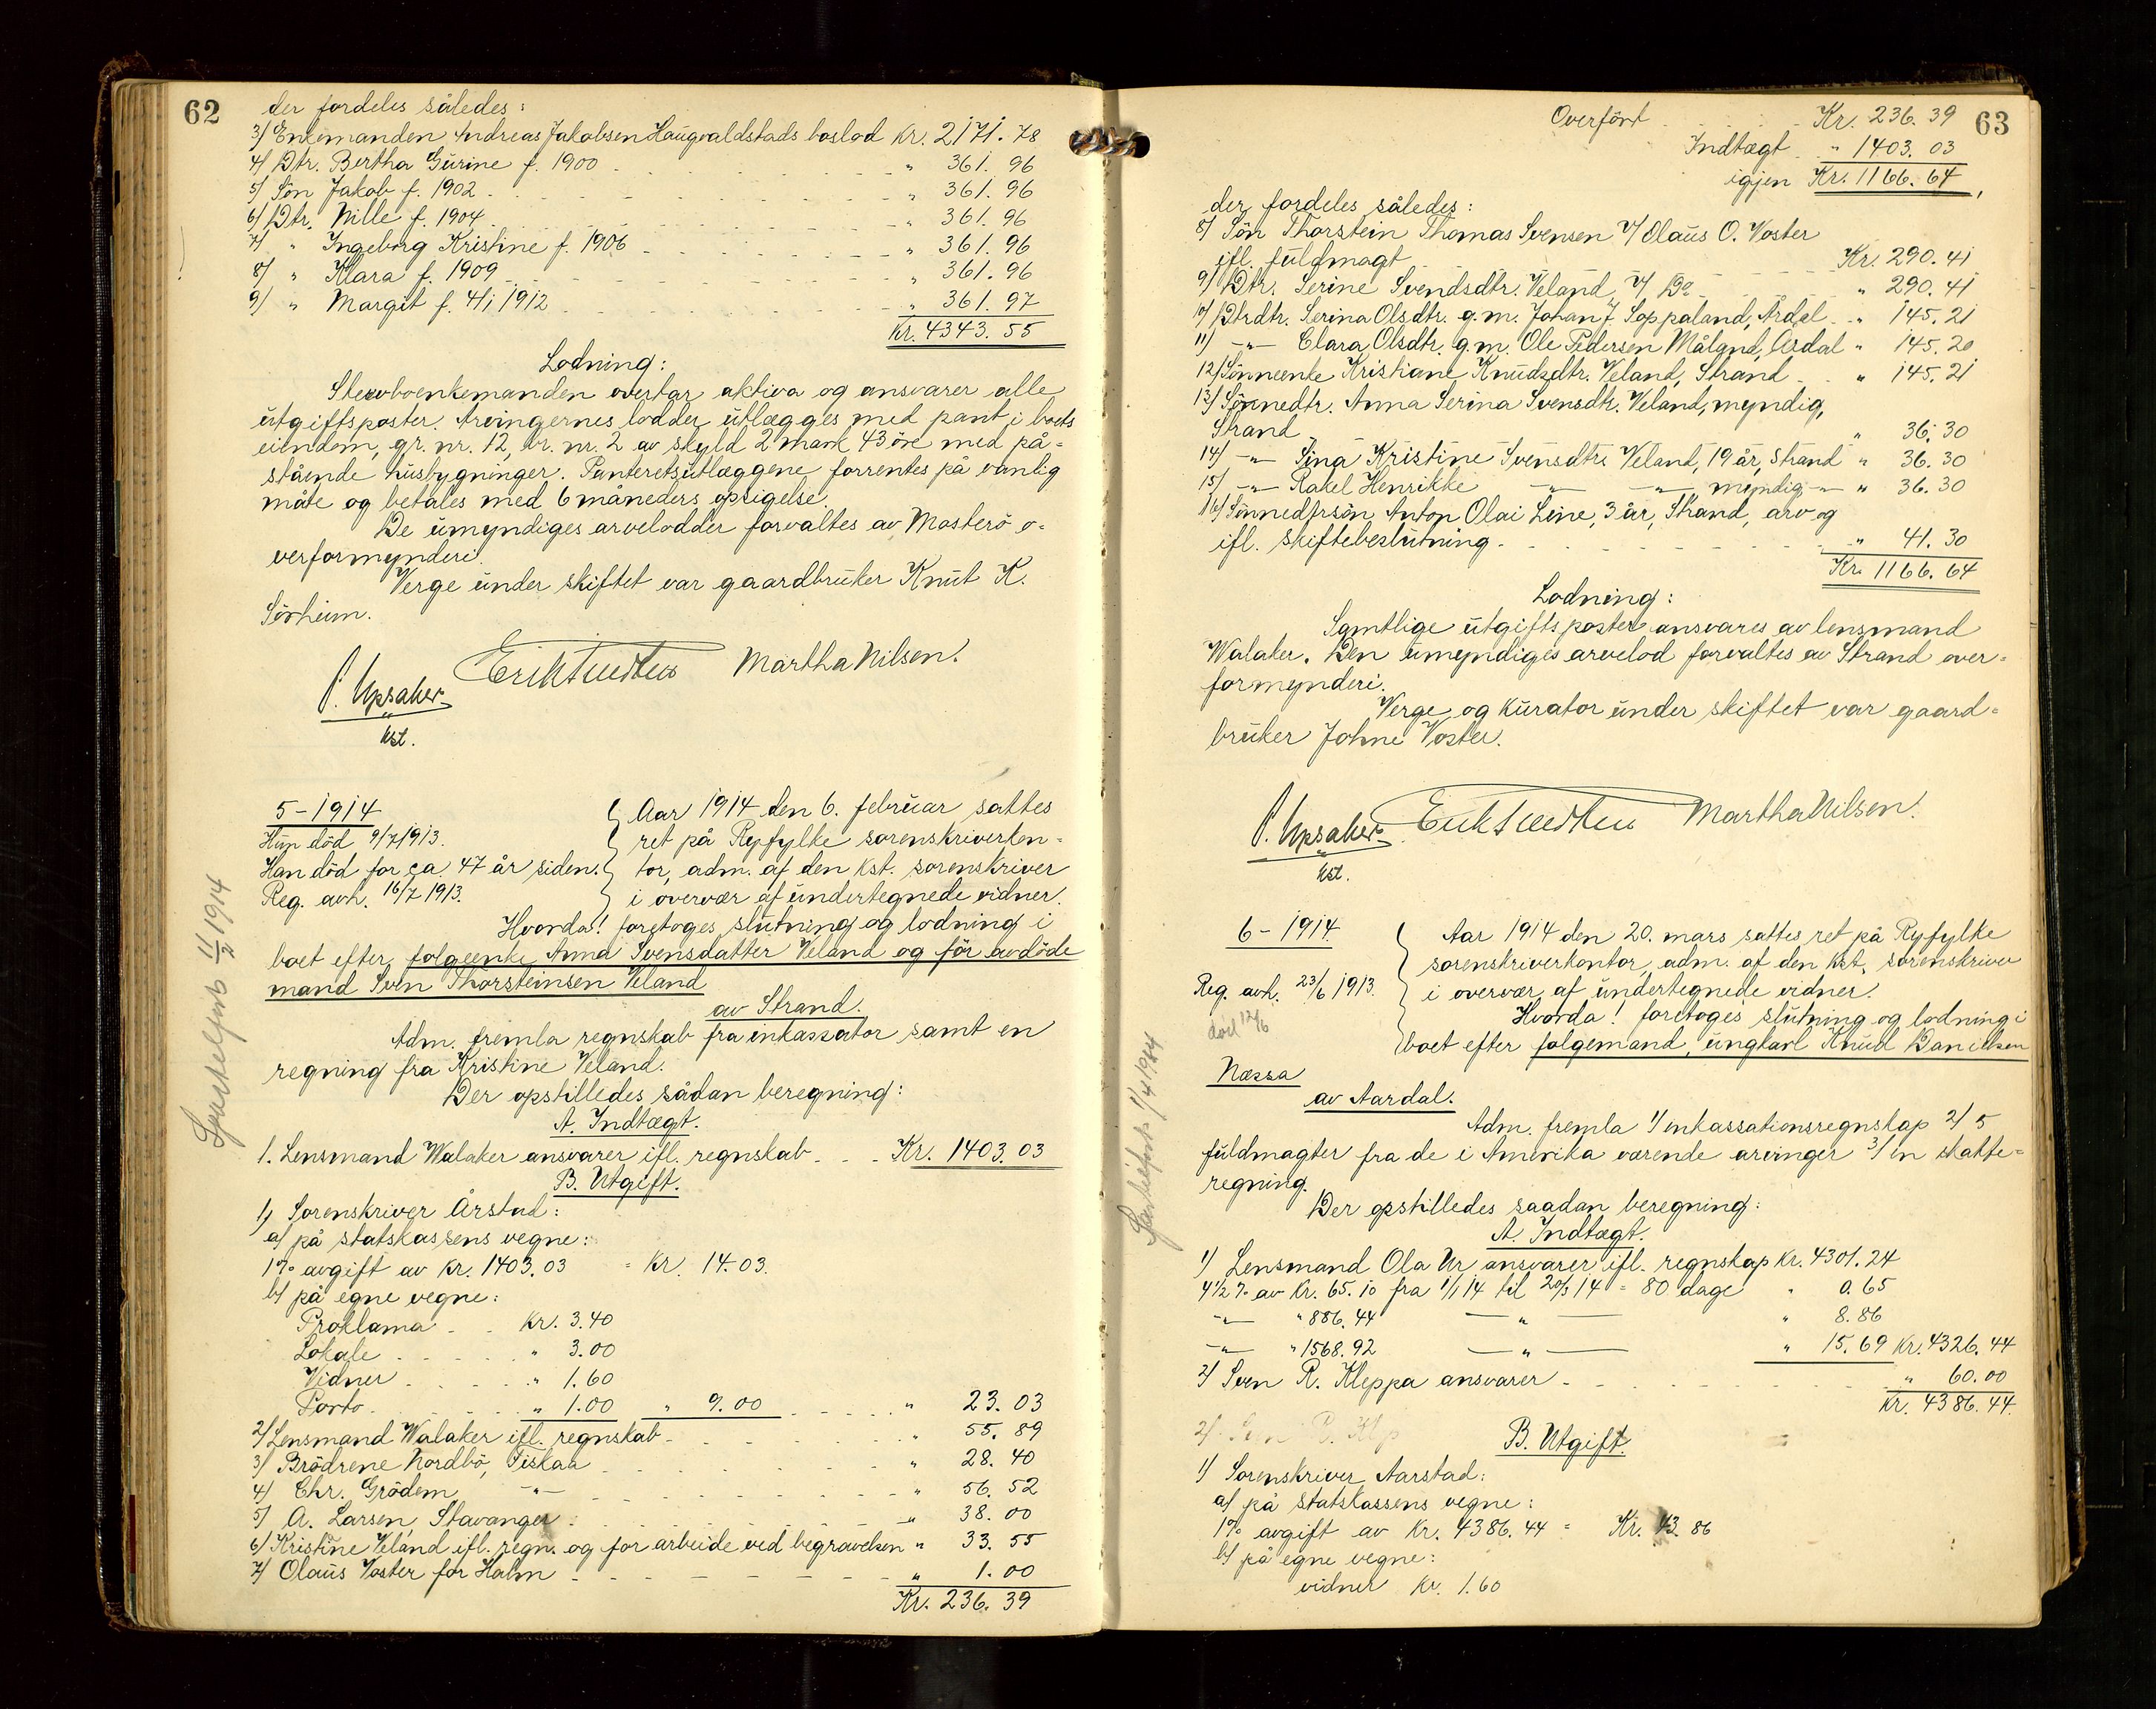 62
der fordeles således:
3) Enkemanden Andreas Jakobsen Haugvaldstads boslod Kr. 2171.78
4) Dtr. Bertha Gurine f. 1900 " 361.96
5) Sön Jakob f. 1902 " 361.96
6) Dtr. Nille f. 1904 " 361.96
7) " Ingeborg Kristine f. 1906 " 361.96
8) " Klara f. 1909 " 361.96
9) " Margit f. 4/1 1912 " 361.97
Kr. 4343.55
Lodning:
Stervboenkemanden overtar aktiva og ansvarer alle
utgiftsposter. Arvingernes lodder utlægges med pant i boets
eiendom, gr. nr. 12, br. nr. 2 av skyld 2 mark 43 öre med på=
stående husbygninger. Panteretsutlæggene forrentes på vanlig
måte og betales med 6 måneders opsigelse.
De umyndiges arvelodder forvaltes av Mosterö o-
verformynderi.
Verge under skiftet var gaardbruker Knut K.
Sörheim.
Martha Nilsen.
P. Upsaker
kst.
5-1914
Hun död 9/7 1913.
Han död for ca. 47 år siden.
Reg. avh. 16/7 1913.
Aar 1914 den 6. februar sattes
ret på Ryfylke sorenskriverkon-
tor, adm. af den kst. sorenskriver
i overvær af undertegnede vidner.
Hvorda! foretoges slutning og lodning i
boet efter folgeenke Anna Svensdatter Veland og för avdöde
mand Sven Thorsteinsen Veland
av Strand.
Adm. fremla regnskab fra inkassator samt en
regning fra Kristine Veland.
Der opstilledes sådan beregning:
A. Indtægt.
1. Lensmand Walaker ansvarer ifl. regnskab Kr. 1403.03
B. Utgift.
1) Sorenskriver Årstad:
a) på statskassens vegne:
1% avgift av kr. 1403.03 = Kr. 14.03.
b) på egne vegne:
Proklama kr. 3.40
Lokale " 3.00
Vidner " 1.60
Porto " 1.00 " 9.00 " 23.03
2) Lensmand Walaker ifl. regnskab " 55.89
3) Brödrene Nordbö, Fiskaa " 28.40
4) Chr. Grödem -"- " 56.52
5) A. Larsen, Stavanger " 38.00
6) Kristine Veland ifl. regn. og for arbeide ved begravelsen " 33.55
7) Olaus Voster for Halm " 1.00
Kr. 236.39
63
Overfört Kr. 236.39
Indtægt " 1403.03
igjen Kr. 1166.64,
der fordeles således:
8) Sön Thorstein Thomas Svensen v/ Olaus O. Voster
ifl. fuldmagt Kr. 290.41
9) Dtr. Serine Svendsdtr. Veland, v/ Do " 290.41
10) Dtrdtr. Serina Olsdtr. g.m. Johan J. Soppaland, Årdal " 145.21
11) -"- Clara Olsdtr. g.m. Ole Pedersen Måland, Årdal " 145.20
12) Sönneenke Kristiane Knudsdtr. Veland, Strand " 145.21
13) Sönnedtr. Anna Serina Svensdtr. Veland, myndig,
Strand " 36.30
14) -"- Sina Kristine Svensdtr. Veland, 19 år, Strand " 36.30
15) -"- Rakel Henrikke -"- -"- myndig -"- " 36.30
16) Sönnedtrsön Anton Olai Leine, 3 år, Strand, arv og
ifl. skiftebeslutning " 41.30
Kr. 1166.64
Lodning:
Samtlige utgiftsposter ansvares av lensmand
Walaker. Den umyndiges arvelod forvaltes av Strand over=
formynderi.
Verge og kurator under skiftet var gaard=
bruker Johne Voster.
Martha Nilsen.
P. Upsaker
kst.
6-1914
Reg. avh. 23/6 1913.
död 12/6
Aar 1914 den 20. mars sattes ret på Ryfylke
sorenskriverkontor, adm. af den kst. sorenskriver
i overvær af undertegnede vidner.
Hvorda! foretoges slutning og lodning i
boet efter folgemand, ungkarl Knud Danielsen
Næssa
av Aardal.
Adm. fremla 1/ inkassationsregnskap 2/ 5
fuldmagter fra de i Amerika værende arvinger 3/ en skatte=
regning.
Der opstilledes saadan beregning:
A. Indtægt.
1) Lensmand Ola Ur ansvarer ifl. regnskap Kr. 4301.24
4 1/2 % av Kr. 65.10 fra 1/1 14 til 20/3 14 = 80 dage " 0.65
-"- " 886.44 -"- " 8.86
-"- " 1568.92 -"- " 15.69 Kr. 4326.44
2) Sven R. Kleppa ansvarer " 60.00
Kr. 4386.44.
B. Utgift.
1) Sorenskriver Aarstad:
a) på statskassens vegne:
1% avgift av Kr. 4386.44 = Kr. 43.86
b) på egne vegne:
vidner kr. 1.60